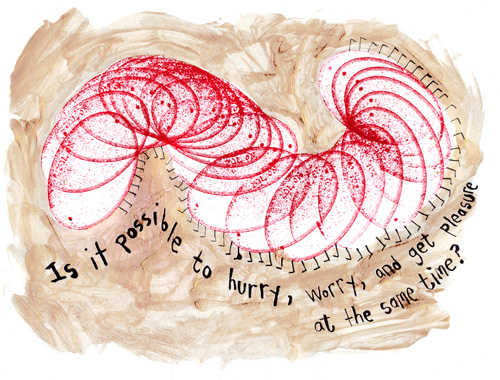 Is it possible to hurry, worry, and get pleasure
at the same time?